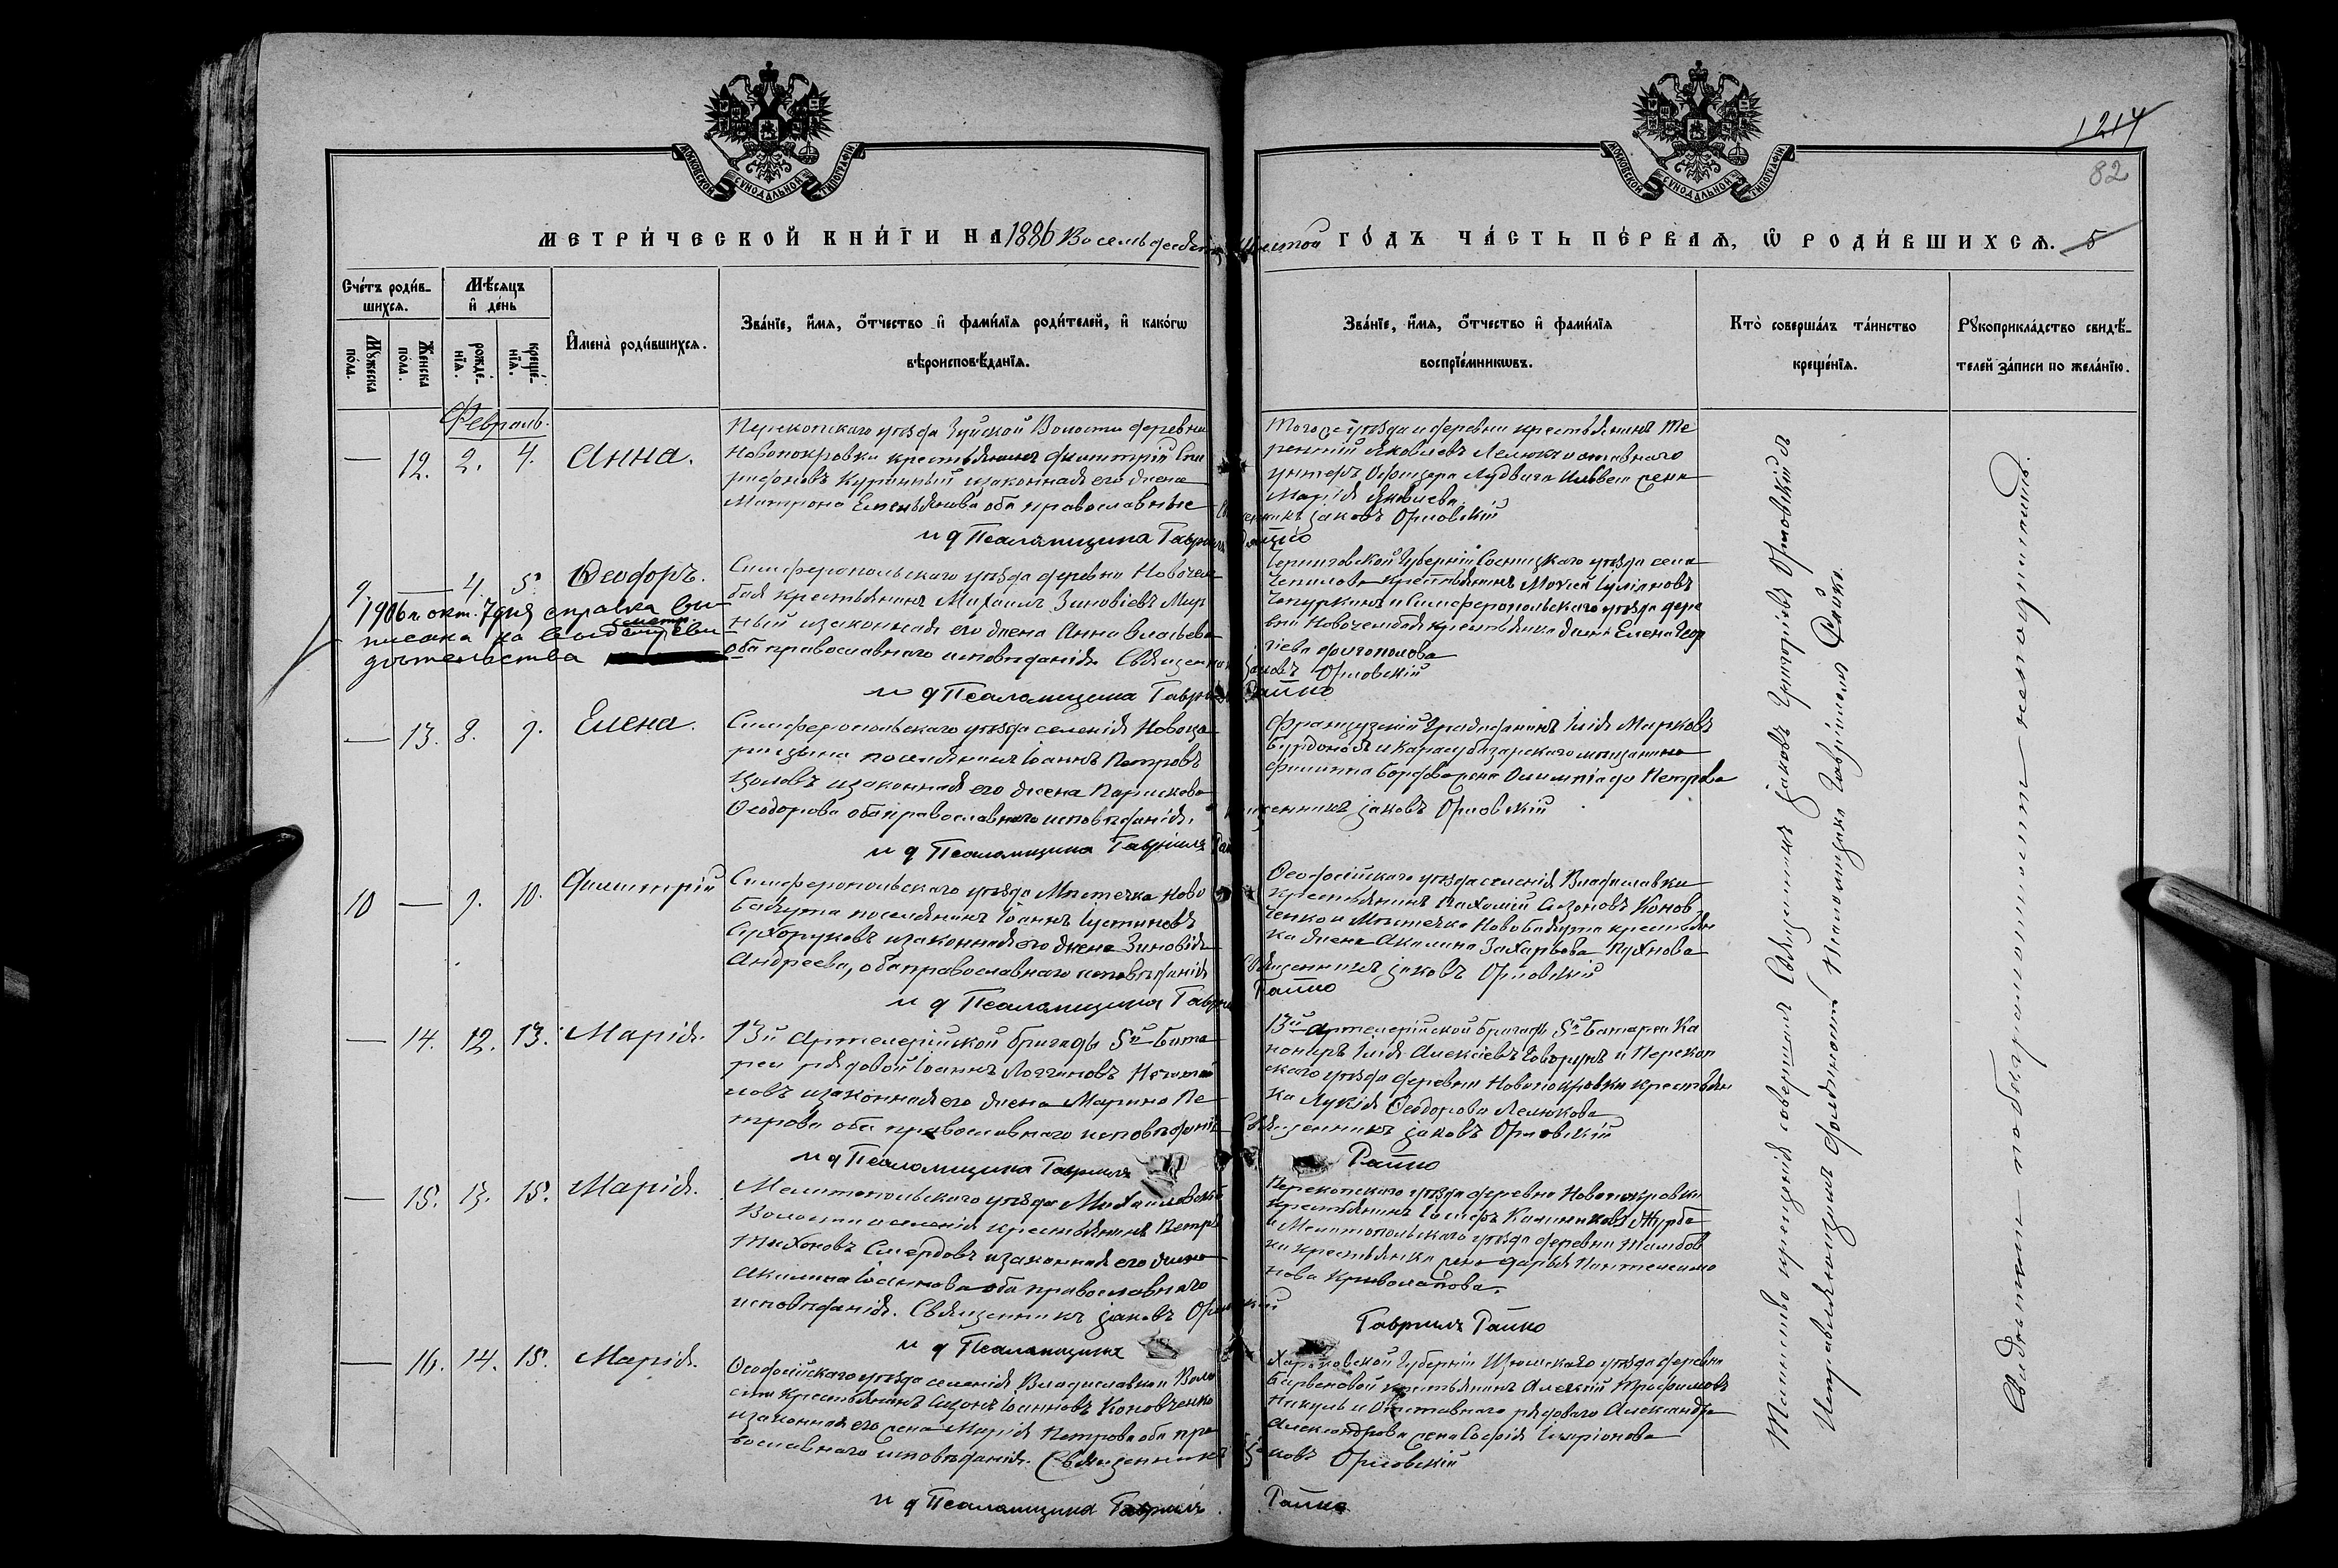 МОСКОВСКОЙ СѴНОДАЛЬНОЙ ТИПОГРАФІИ
МОСКОВСКОЙ СѴНОДАЛЬНОЙ ТИПОГРАФІИ
1214
82
МЕТРИ́ЧЕСКОЙ КНИ́ГИ НА 1886 Восемьдесятъ Шестой ГО́ДЪ ЧА́СТЬ ПЕ́РВАѦ, Ѡ РОДИ́ВШИХСѦ. 5
Сче́тъ роди́в-
шихсѧ.
Мѣ́сяцъ
и҆ де́нь
Мꙋ́жеска по́ла.
Же́нска по́ла.
рожде́-
нїѧ.
креще́-
нїѧ.
И҆мена̀ роди́вшихсѧ.
Зва́нїе, и҆́мѧ, ѻ҆́тчество и҆ фами́лїѧ роди́телей, и҆ како́гѡ
вѣроисповѣ́данїѧ.
Зва́нїе, и҆́мѧ, ѻ҆́тчество и҆ фами́лїѧ
воспрїе́мникѡвъ.
Кто̀ соверша́лъ та́инство
креще́нїѧ.
Рꙋкоприкла́дство свидѣ́-
телей за́писи по жела́нїю.
Февраль.
— 12. 2. 4. Анна.
Перекопскаго уѣзда Зуйской Волости деревни
Новопокровки крестьянинъ Димитрій Спи
ридоновъ Куринный и законная его жена
Матрона Емельянова оба православные
Тогоже уѣзда и деревни крестьянинъ Те
рентій Яковлевъ Лелюкъ и отставного
унтеръ Офицера Людвига жена
Марія Яковлева.
Священникъ Іаковъ Орловскій
и д Псаломщика Гавріилъ Райко
9. — 4. 5. Ѳеодоръ.
1906 г. окт. 7 дня справка вы
писана на метр. свидѣ
дѣтельства
Симферопольскаго уѣзда деревни Новочем
бая крестьянинъ Михаилъ Зиновіевъ Мир
ный и законная его жена Анна Власьева
оба православнаго исповѣданія. Священникъ Іаковъ Орловскій
Черниговской Губерніи Сосницкаго уѣзда села
крестьянинъ Моисей
Чепуркинъ и Симферопольскаго уѣзда дере
вни Новочембая крестьянка дѣвица Елена Геор
гіева
и д Псаломщика Гавріилъ Райко
— 13. 8. 9. Елена.
Симферопольскаго уѣзда селенія Новоца
рицына поселянинъ Іоаннъ Петровъ
Цоловъ и законная его жена Параскева
Ѳеодорова оба православнаго исповѣданія.
Французскій Гражданинъ Илія Марковъ
и Карасубазарскаго мѣщанина
Филиппа жена Олимпіада Петрова
Священникъ Іаковъ Орловскій
и д Псаломщика Гавріилъ Райко
10 — 9. 10. Димитрій
Симферопольскаго уѣзда Мѣстечка Ново
Баяута поселянинъ Іоаннъ Іустиновъ
Сухоруковъ и законная его жена Зиновія
Андреева, оба православнаго исповѣданія
Ѳеодосійскаго уѣзда селенія Владиславки
крестьянинъ Пахомій Сизоновъ Конов
ченко и Мѣстечка Новобаяута крестьян
ка жена Акилина Захарьева Пухнова
Священникъ Іаковъ Орловскій
и д Псаломщика Гавріилъ Райко
— 14. 12. 13. Марія.
13й Артелерійской бригады 5й Бата
реи рядовой Іоаннъ Логгиновъ Негата
новъ и законная его жена Марина Пе
трова оба православнаго исповѣданія
13й Артелерійской бригады 5й Батареи Ка
нониръ Илія Алексіевъ Говорунъ и Перекоп
скаго уѣзда деревни Новопокровки крестьян
ка Лукія Ѳеодорова Лелюкова
Священникъ Іаковъ Орловскій
и д Псаломщика Гавріилъ Райко
— 15. 13. 15. Марія.
Мелитопольскаго уѣзда Михайловской
Волости и селенія крестьянинъ Петръ
Тихоновъ Смердовъ и законная его жена
Акилина Іоаннова оба православнаго
исповѣданія. Священникъ Іаковъ Орловскій
Перекопскаго уѣзда деревни Новопокровки
Крестьянинъ Іосифъ Калиниковъ Журба
и Мелитопольскаго уѣзда деревни Тамбов
ки крестьянка жена Дарья Пантелеимо
нова Криволапова.
и д Псаломщика Гавріилъ Райко
— 16. 14. 15. Марія.
Ѳеодосійскаго уѣзда селенія Владиславки Воло
сти Крестьянинъ Сизонъ Іоанновъ Коновченко
и законная его жена Марія Петрова оба пра
вославнаго исповѣданія. Священникъ Іаковъ Орловскій
Харьковской Губерніи Изюмскаго уѣзда деревни
Барвенковой крестьянинъ Алексій Трофимовъ
Никуль и Отставного рядового Александра
Александрова жена Софія Иларіонова
и д Псаломщика Гавріилъ Райко
Таинство крещенія совершалъ Священникъ Іаковъ Григоріевъ Орловскій съ
Исправляющимъ должность Псаломщика Гавріиломъ Райко.
Свидѣтели по безграмотности неподписались.